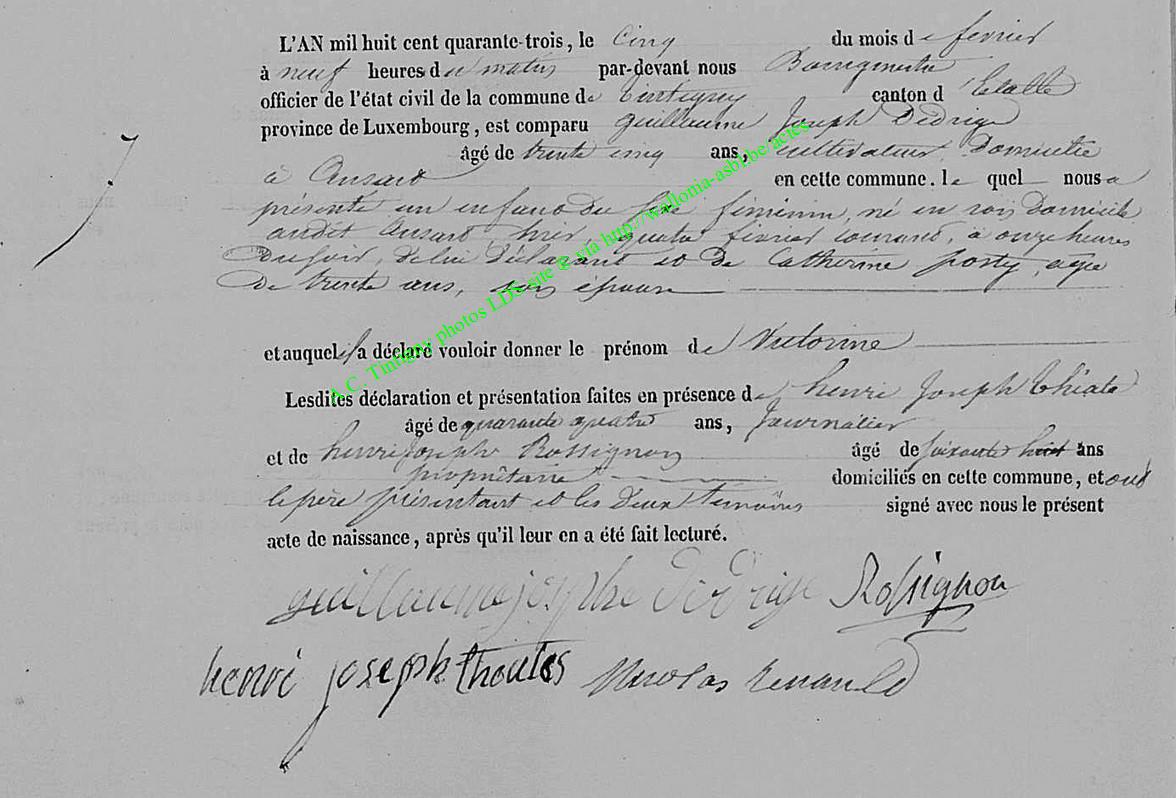 L'AN mil huit cent quarante-trois, le Cinq du mois de février
à neuf heures du matin par-devant nous Bourgmestre
officier de l'état civil de la commune de Tintigny canton d'Etalle
province de Luxembourg, est comparu guillaume Joseph Dedrige
âgé de trente cinq ans, cultivateur, Domicilié
à Ansart en cette commune. le quel nous a
présenté un enfant du sexe féminin, né en son domicile
audit Ansart hier quatre février courant, à onze heures
Du soir, de lui déclarant et de Catherine posty, agée
De trente ans, son épouse
et auquel il a déclaré vouloir donner le prénom de Victorine
Lesdites déclaration et présentation faites en présence de henri Joseph
âgé de quarante quatre ans, Journalier
et de henri Joseph Rossignon âgé de soixante huit ans
propriétaire domiciliés en cette commune, et ont
le père présentant et les deux témoins signé avec nous le présent
acte de naissance, après qu'il leur en a été fait lecturé.
guillaume josephe didrige Rossignon
henri joseph Nicolas
A.C. Tintigny photos LDs site & via http://wallonia-asbl.be/actes